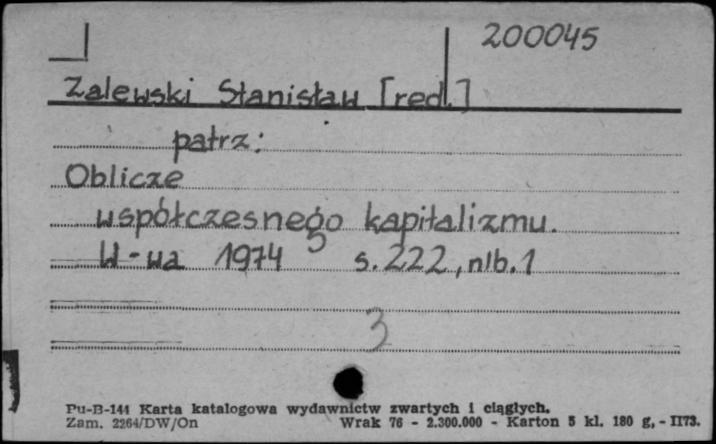 200045
Zalewski Stanisław [red.]
patrz:
Oblicze
współczesnego kapitalizmu.
W-wa 1974 s. 222, nlb. 1
3
Pu-B-144 Karta katalogowa wydawnictw zwartych i ciągłych.
Zam. 2264/DW/On Wrak 76 - 2.300.000 - Karton 5 kl. 180 g, - II73.